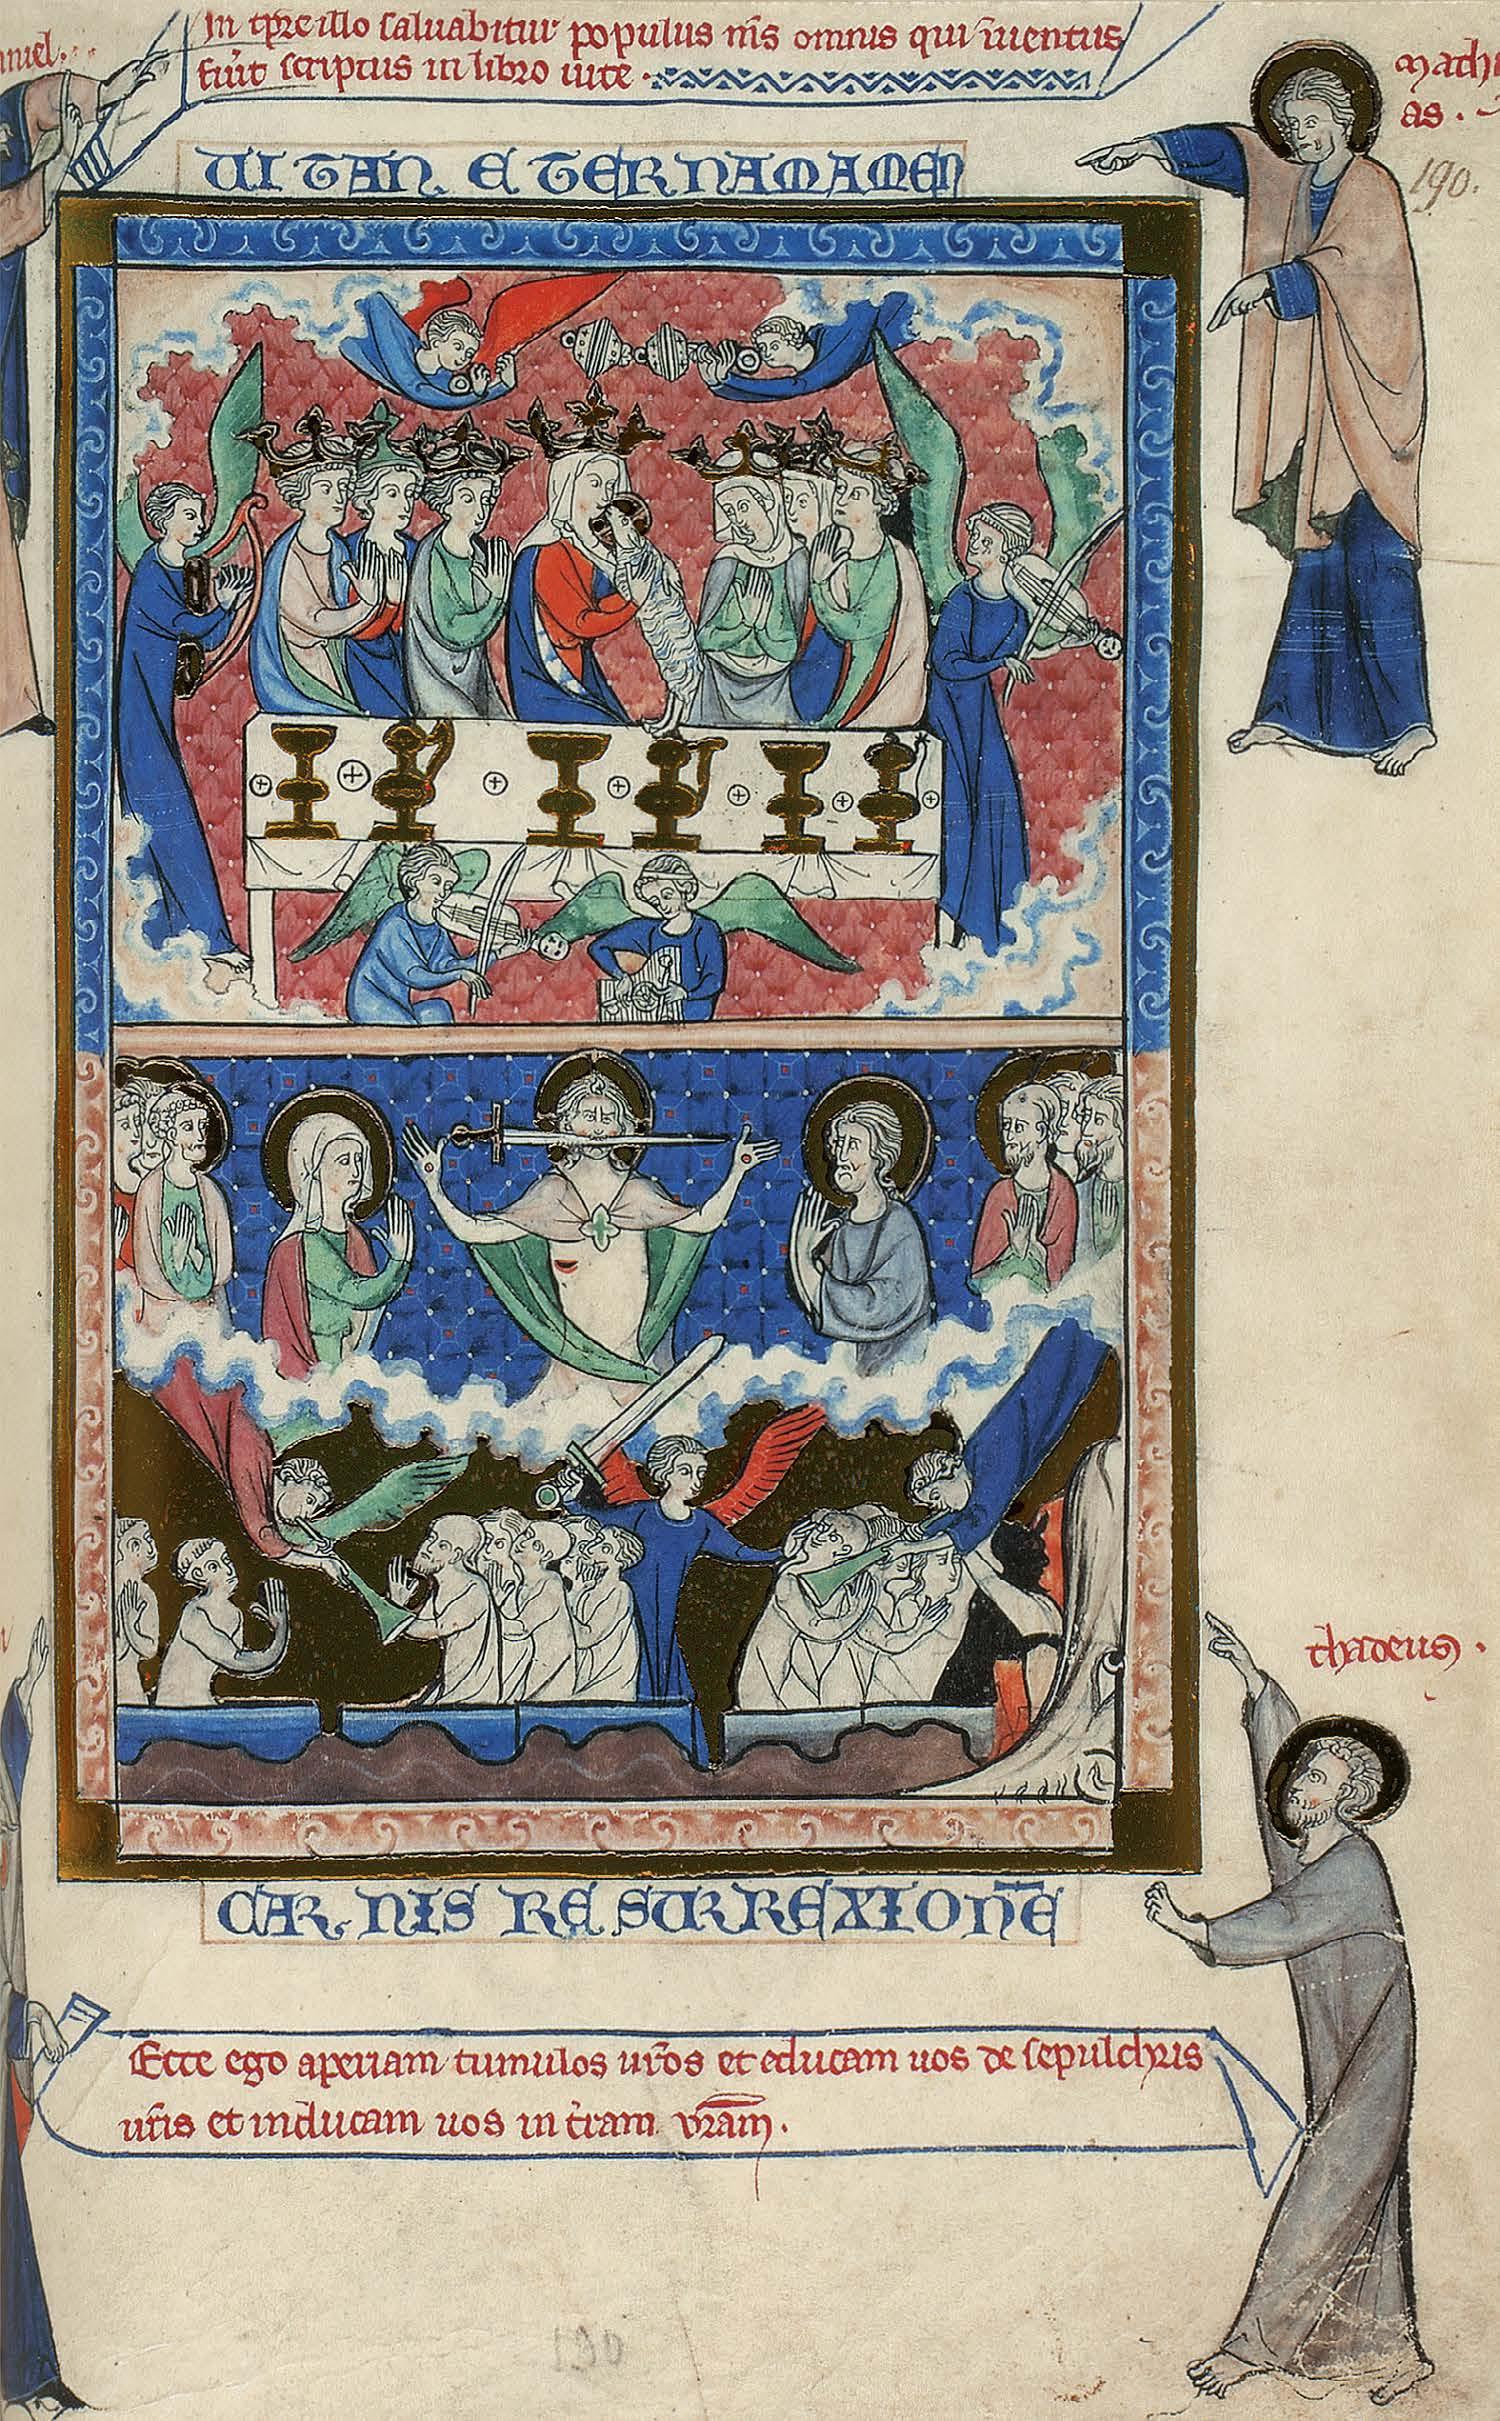 In tp̄re illo saluabitur populus nr̄s omnis qui inuentus
fuit̄ scriptus in libro uite.
niel.
math
as.
190.
VITAN ETERNAM AMEN
thadeus.
CARNIS RESURREXIONE̅
Ecce ego aperiam tumulos ur̄os et educam uos de sepulchris
ur̄is et inducam uos in tr̄am vr̄am.
190